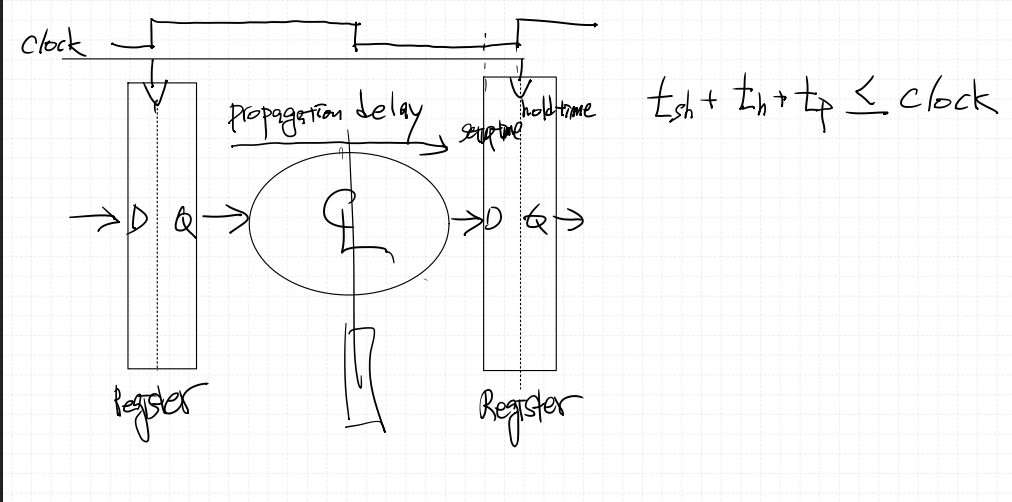 clock
propagation delay
setuptime
holdtime
t_sh + t_h + t_p ≤ clock
D Q
CL
D Q
Register
Register